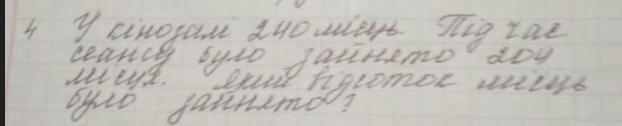 4 У кінозалі 240 місць. Під час
сеансу було зайнято 204
місця. який відсоток місць
було зайнято?